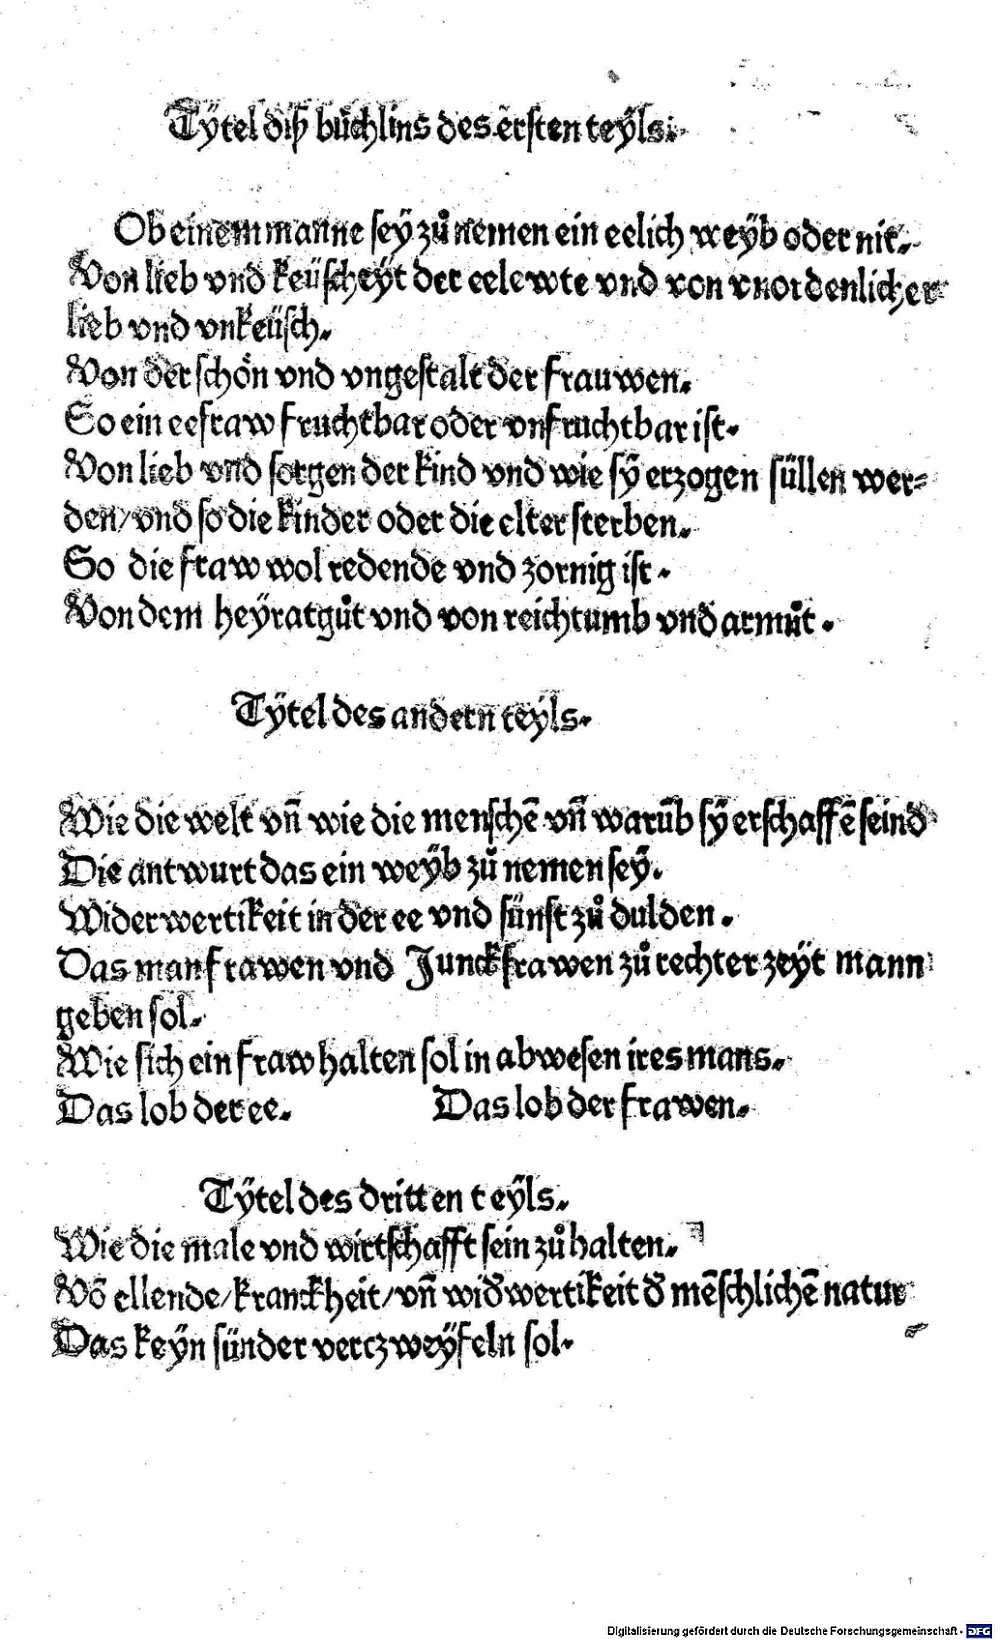 Tÿtel diß bůchlins des ersten teÿls.
Ob einem manne seÿ zů nemen ein eelich weÿb oder nit.
Von lieb vnd keüscheÿt der eelewte vnd von vnordenlicher
lieb vnd vnkeüsch.
Von der schön vnd vngestalt der frauwen.
So ein eefraw fruchtbar oder vnfruchtbar ist.
Von lieb vnd sorgen der kind vnd wie sÿ erzogen süllen wer=
den/vnd so die kinder oder die elter sterben.
So die fraw wol redende vnd zornig ist.
Von dem heÿratgůt vnd von reichtumb vnd armůt.
Tÿtel des andern teÿls.
Wie die welt vn̄ wie die menschē vn̄ warūb sÿ erschaffē seind
Die antwurt das ein weÿb zů nemen seÿ.
Widerwertikeit in der ee vnd sünst zů dulden.
Das man frawen vnd Junckfrawen zů rechter zeÿt mann
geben sol.
Wie sich ein fraw halten sol in abwesen ires mans.
Das lob der ee. Das lob der frawen.
Tÿtel des dritten teÿls.
Wie die male vnd wirtschafft sein zů halten.
Vō ellende/kranckheit/vn̄ wid̕wertikeit d̕ mēschlichē natur
Das keÿn sünder verczweÿfeln sol.
Digitalisierung gefördert durch die Deutsche Forschungsgemeinschaft - DFG